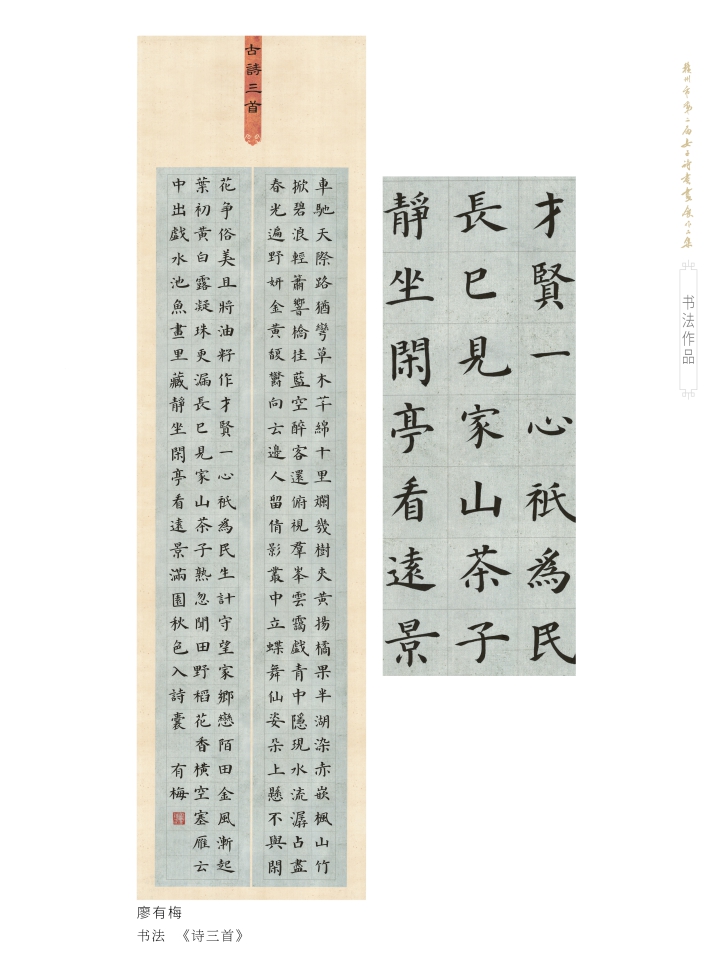 古詩三首
車馳天際路猶彎草木芊綿十里斕幾樹夾黃揚橘果半湖染赤嵌楓山竹
掀碧浪輕簫響檐挂藍空醉客還俯視羣峯雲靄戲青中隱現水流潺占盡
春光遍野妍金黃馥鬱向云邊人留倩影叢中立蝶舞仙姿朵上懸不與閑
花爭俗美且將油籽作才賢一心祇為民生計守望家鄉戀陌田金風漸起
葉初黃白露凝珠更漏長已見家山茶子熟忽聞田野稻花香橫空塞雁云
中出戲水池魚畫里藏靜坐閑亭看遠景滿園秋色入詩囊 有梅
才賢一心祇為民
長已見家山茶子
靜坐閑亭看遠景
赣州市第二届女子诗书画展作品集
书法作品
廖有梅
书法 《诗三首》